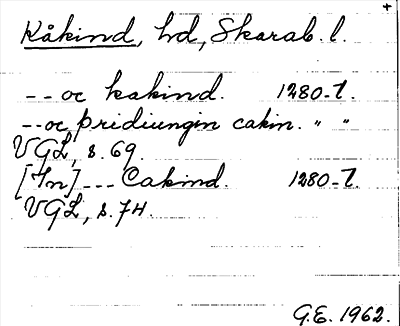 +
Kåkind, hd, Skarab. l.
-- oc kakind. 1280-t.
-- oc þridiungin cakin. " "
VGL, s. 69.
[In] --- Cakind. 1280-t.
VGL, s. 74.
G.E. 1962.